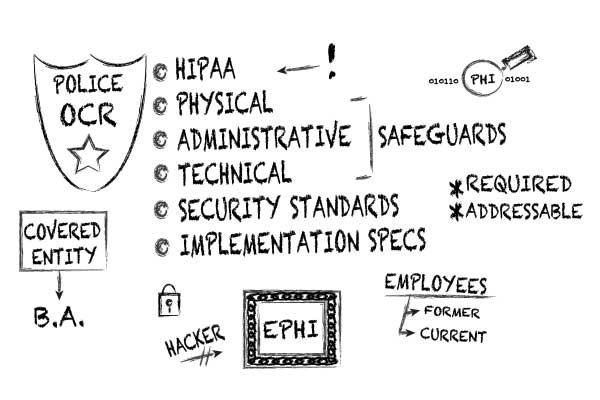 POLICE
OCR
HIPAA
!
PHYSICAL
ADMINISTRATIVE
TECHNICAL
SAFEGUARDS
SECURITY STANDARDS
IMPLEMENTATION SPECS
010110 PHI 01001
*REQUIRED
*ADDRESSABLE
COVERED
ENTITY
B.A.
HACKER
EPHI
EMPLOYEES
FORMER
CURRENT